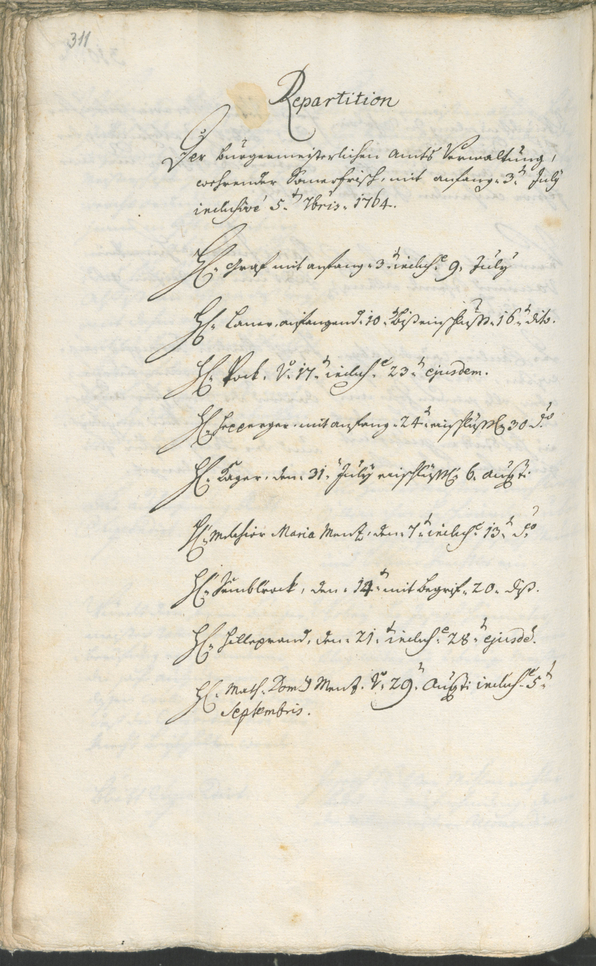 311
Repartition
Der burgermeisterlichen Amts Verwaltung,
wehrender Somerfrisch, mit anfang 3.t July
inclusive 5.t 7bris. 1764.
H. Graf mit anfang 3.t inclus. 9. July
H. Laner, anfangend 10.t biß einschlüß. 16.t dito.
H. Pock. V. 17.t inclus. 23.t ejusdem.
H. mit anfang 24.t einschlüß. 30 do
H. Kager, den 31. July einschlüß. 6. Augti.
H. Melchior Maria Menz, den 7.t inclus. 13.t do
H. Sumblrock, den 14.t mit begrif 20. diß.
H. Hilleprand, den 21.t inclus. 28.t ejusd.
H. Math. Dom. Menz. V. 29.t Augti inclus. 5.t
Septembris.